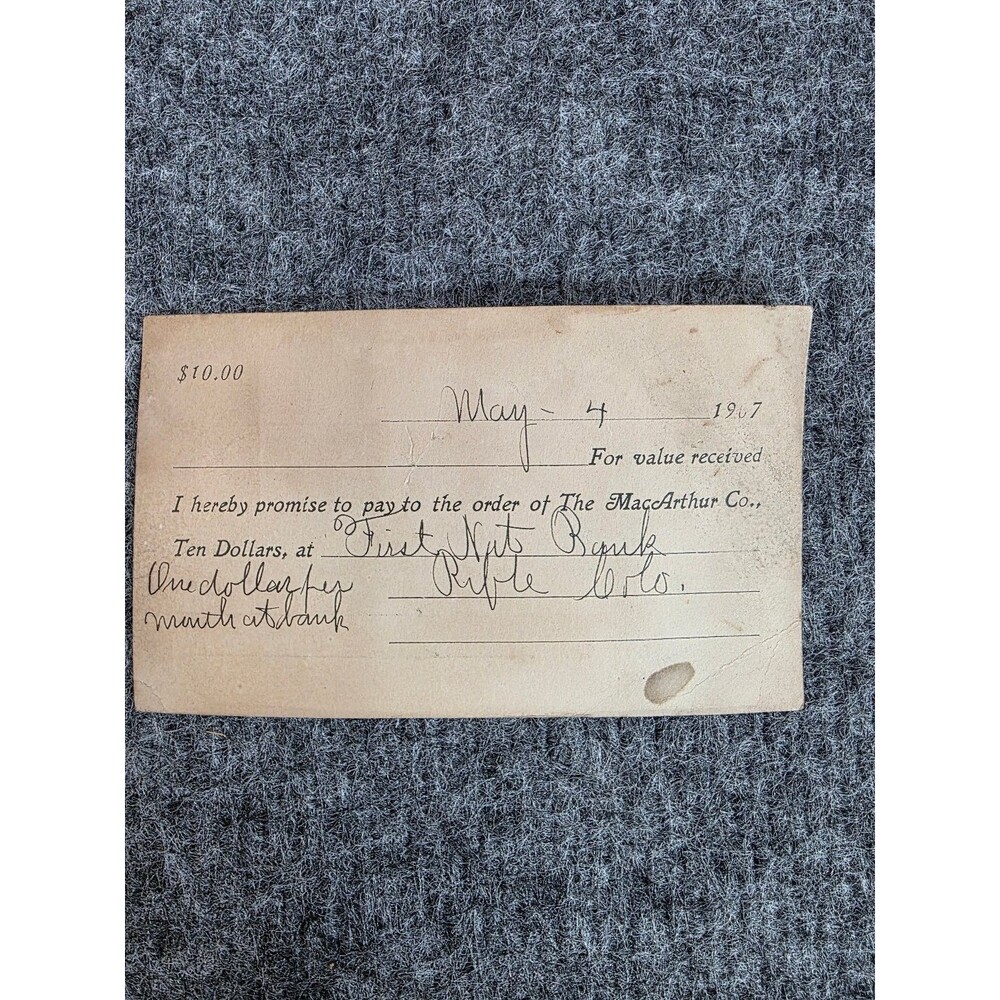 $10.00
May - 4 1907
For value received
I hereby promise to pay to the order of The MacArthur Co.,
Ten Dollars, at First Nat Bank
Rifle Colo.
One dollar per
month at bank